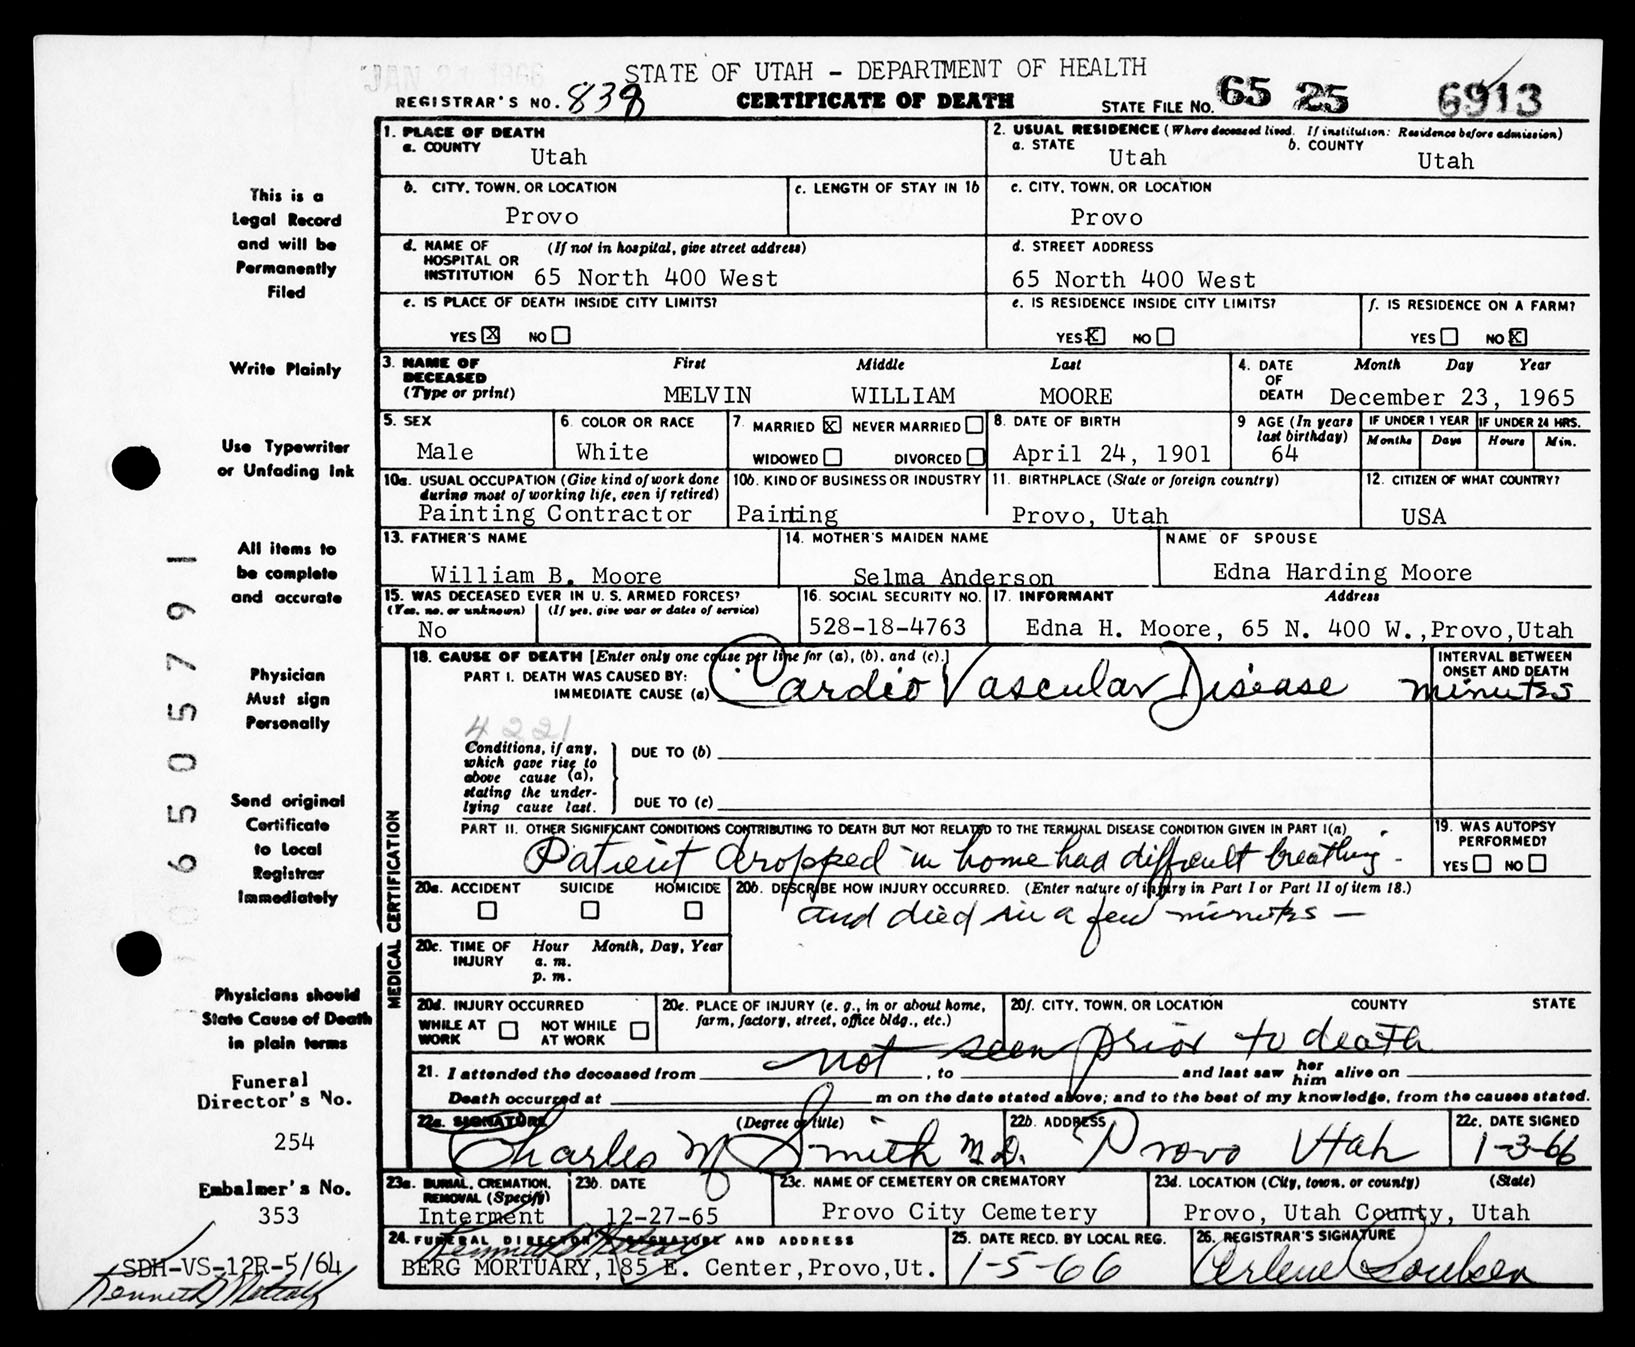 JAN 21 1966
STATE OF UTAH - DEPARTMENT OF HEALTH
REGISTRAR'S NO. 838 CERTIFICATE OF DEATH STATE FILE NO. 65 25 6913
1. PLACE OF DEATH
a. COUNTY Utah
2. USUAL RESIDENCE (Where deceased lived. If institution: Residence before admission)
a. STATE Utah b. COUNTY Utah
b. CITY, TOWN, OR LOCATION Provo
c. LENGTH OF STAY IN 1b
c. CITY, TOWN, OR LOCATION Provo
d. NAME OF HOSPITAL OR INSTITUTION (If not in hospital, give street address) 65 North 400 West
d. STREET ADDRESS 65 North 400 West
e. IS PLACE OF DEATH INSIDE CITY LIMITS?
YES X NO
e. IS RESIDENCE INSIDE CITY LIMITS?
YES X NO
f. IS RESIDENCE ON A FARM?
YES NO X
3. NAME OF DECEASED (Type or print) First Middle Last
MELVIN WILLIAM MOORE
4. DATE OF DEATH Month Day Year
December 23, 1965
5. SEX Male
6. COLOR OR RACE White
7. MARRIED X NEVER MARRIED
WIDOWED DIVORCED
8. DATE OF BIRTH April 24, 1901
9 AGE (In years last birthday) 64
IF UNDER 1 YEAR Months Days
IF UNDER 24 HRS. Hours Min.
10a. USUAL OCCUPATION (Give kind of work done during most of working life, even if retired)
Painting Contractor
10b. KIND OF BUSINESS OR INDUSTRY
Painting
11. BIRTHPLACE (State or foreign country)
Provo, Utah
12. CITIZEN OF WHAT COUNTRY?
USA
13. FATHER'S NAME
William B. Moore
14. MOTHER'S MAIDEN NAME
Selma Anderson
NAME OF SPOUSE
Edna Harding Moore
15. WAS DECEASED EVER IN U.S. ARMED FORCES?
(Yes, no, or unknown) (If yes, give war or dates of service)
No
16. SOCIAL SECURITY NO.
528-18-4763
17. INFORMANT Address
Edna H. Moore, 65 N. 400 W.,Provo,Utah
MEDICAL CERTIFICATION
18. CAUSE OF DEATH [Enter only one cause per line for (a), (b), and (c).]
PART I. DEATH WAS CAUSED BY:
IMMEDIATE CAUSE (a) Cardio Vascular Disease
INTERVAL BETWEEN ONSET AND DEATH
minutes
4221
Conditions, if any, which gave rise to above cause (a), stating the underlying cause last.
DUE TO (b)
DUE TO (c)
PART II. OTHER SIGNIFICANT CONDITIONS CONTRIBUTING TO DEATH BUT NOT RELATED TO THE TERMINAL DISEASE CONDITION GIVEN IN PART I(a)
Patient dropped in home had difficult breathing -
19. WAS AUTOPSY PERFORMED?
YES NO
20a. ACCIDENT SUICIDE HOMICIDE
20b. DESCRIBE HOW INJURY OCCURRED. (Enter nature of injury in Part I or Part II of item 18.)
and died in a few minutes -
20c. TIME OF INJURY Hour a. m. p. m. Month, Day, Year
20d. INJURY OCCURRED
WHILE AT WORK NOT WHILE AT WORK
20e. PLACE OF INJURY (e. g., in or about home, farm, factory, street, office bldg., etc.)
20f. CITY, TOWN, OR LOCATION COUNTY STATE
not seen prior to death
21. I attended the deceased from , to and last saw her him alive on
Death occurred at m on the date stated above; and to the best of my knowledge, from the causes stated.
22a. SIGNATURE (Degree or title)
Charles M Smith M.D.
22b. ADDRESS
Provo Utah
22c. DATE SIGNED
1-3-66
23a. BURIAL, CREMATION, REMOVAL (Specify)
Interment
23b. DATE
12-27-65
23c. NAME OF CEMETERY OR CREMATORY
Provo City Cemetery
23d. LOCATION (City, town, or county) (State)
Provo, Utah County, Utah
24. FUNERAL DIRECTOR'S SIGNATURE AND ADDRESS
BERG MORTUARY,185 E. Center,Provo,Ut.
25. DATE RECD. BY LOCAL REG.
1-5-66
26. REGISTRAR'S SIGNATURE
This is a
Legal Record
and will be
Permanently
Filed
Write Plainly
Use Typewriter
or Unfading Ink
All items to
be complete
and accurate
Physician
Must sign
Personally
Send original
Certificate
to Local
Registrar
Immediately
Physicians should
State Cause of Death
in plain terms
Funeral
Director's No.
254
Embalmer's No.
353
SDH-VS-12R-5/64
Kenneth Metcalf
06505791